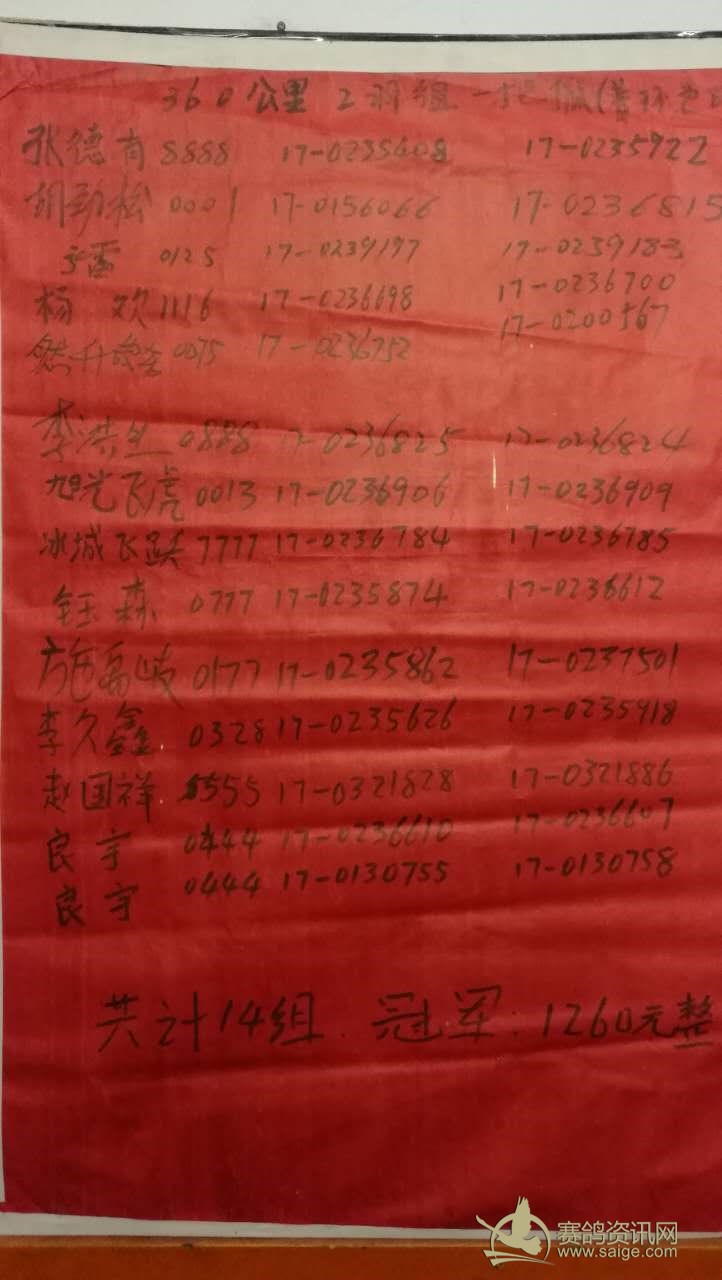 360公里 2羽组 一把
张德育 8888 17-0235608 17-0235922
胡劲松 0001 17-0156066 17-0236815
雷 0125 17-0239197 17-0239183
杨欢 1116 17-0236698 17-0236700
升 0075 17-0236752 17-0200567
李洪生 0888 17-0236825 17-0236824
旭光飞虎 0013 17-0236906 17-0236909
冰城飞跃 7777 17-0236784 17-0236785
钰森 0777 17-0235874 17-0236612
0177 17-0235862 17-0237501
李久鑫 0328 17-0235626 17-0235918
赵国祥 5555 17-0321828 17-0321886
良宇 0444 17-0236610 17-0236607
良宇 0444 17-0130755 17-0130758
共计14组. 冠军:1260元整
赛鸽资讯网
www.saige.com